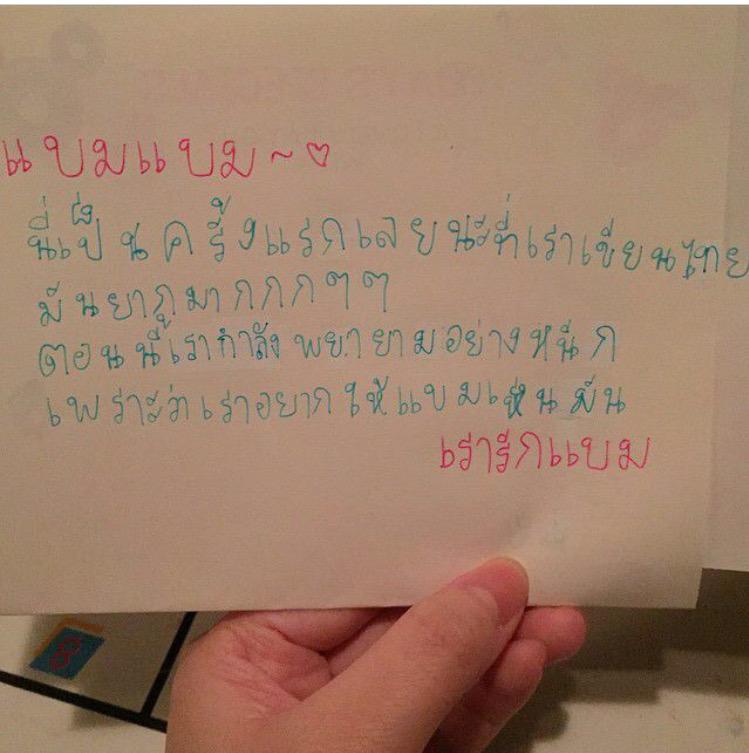 แบมแบม~♡
นี่เป็นครั้งแรกเลยนะที่เราเขียนไทย
มันยากมากกกๆๆ
ตอนนี้เรากำลังพยายามอย่างหนัก
เพราะว่าเราอยากให้แบมเห็นมัน
เรารักแบม
8